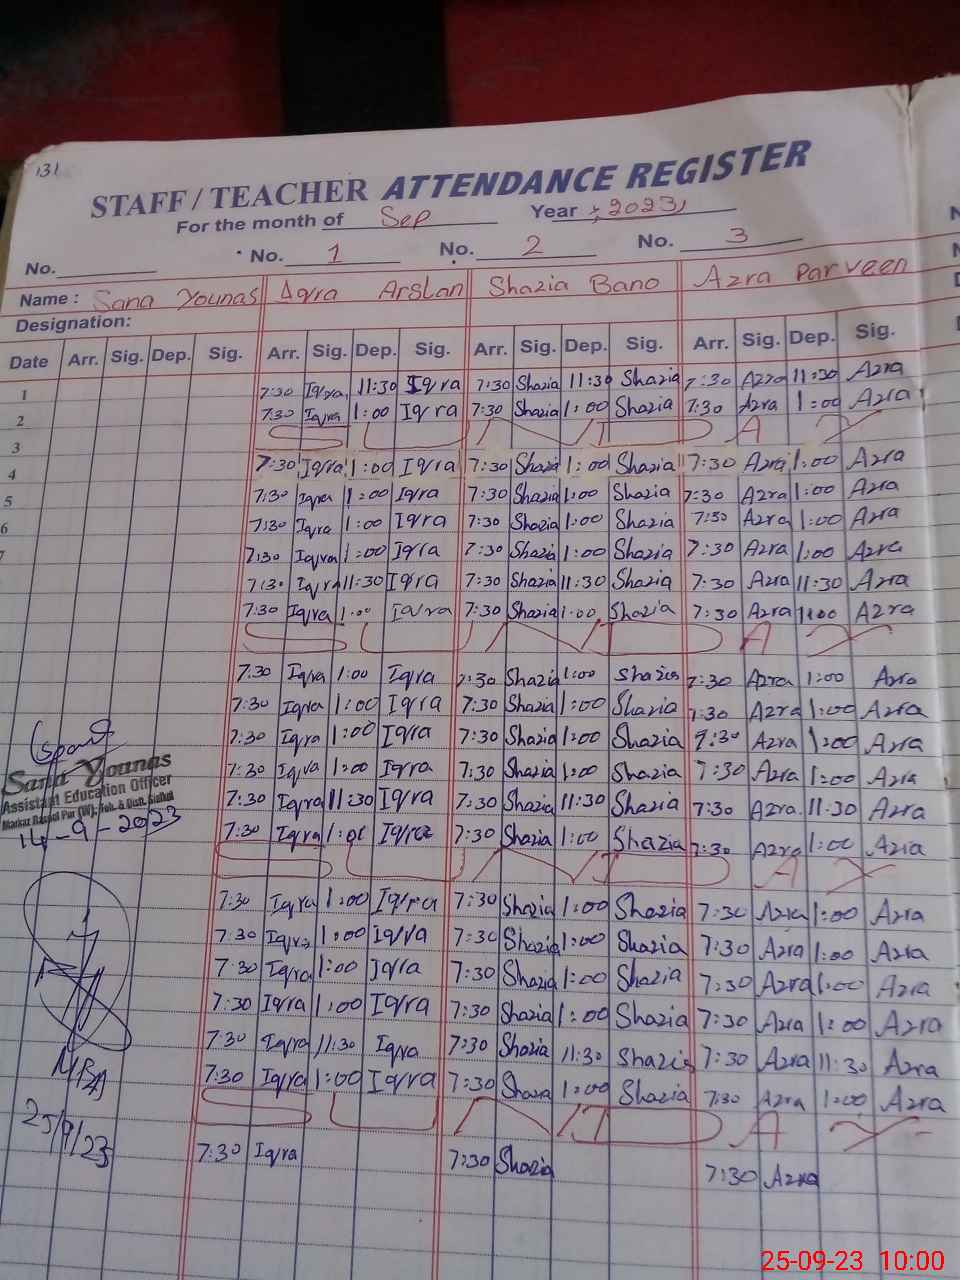 131
STAFF / TEACHER ATTENDANCE REGISTER
For the month of Sep Year 2023
No. No. 1 No. 2 No. 3
Name : Sana Younas Iqra Arslan Shazia Bano Azra Parveen
Designation:
Date Arr. Sig. Dep. Sig. Arr. Sig. Dep. Sig. Arr. Sig. Dep. Sig. Arr. Sig. Dep. Sig.
1 7:30 Iqra 11:30 Iqra 7:30 Shazia 11:30 Shazia 7:30 Azra 11:30 Azra
2 7:30 Iqra 1:00 Iqra 7:30 Shazia 1:00 Shazia 7:30 Azra 1:00 Azra
3 S U N D A Y
4 7:30 Iqra 1:00 Iqra 7:30 Shazia 1:00 Shazia 7:30 Azra 1:00 Azra
5 7:30 Iqra 1:00 Iqra 7:30 Shazia 1:00 Shazia 7:30 Azra 1:00 Azra
6 7:30 Iqra 1:00 Iqra 7:30 Shazia 1:00 Shazia 7:30 Azra 1:00 Azra
7 7:30 Iqra 1:00 Iqra 7:30 Shazia 1:00 Shazia 7:30 Azra 1:00 Azra
7:30 Iqra 11:30 Iqra 7:30 Shazia 11:30 Shazia 7:30 Azra 11:30 Azra
7:30 Iqra 1:00 Iqra 7:30 Shazia 1:00 Shazia 7:30 Azra 1:00 Azra
S U N D A Y
7:30 Iqra 1:00 Iqra 7:30 Shazia 1:00 Shazia 7:30 Azra 1:00 Azra
7:30 Iqra 1:00 Iqra 7:30 Shazia 1:00 Shazia 7:30 Azra 1:00 Azra
7:30 Iqra 1:00 Iqra 7:30 Shazia 1:00 Shazia 7:30 Azra 1:00 Azra
7:30 Iqra 1:00 Iqra 7:30 Shazia 1:00 Shazia 7:30 Azra 1:00 Azra
7:30 Iqra 11:30 Iqra 7:30 Shazia 11:30 Shazia 7:30 Azra 11:30 Azra
7:30 Iqra 1:00 Iqra 7:30 Shazia 1:00 Shazia 7:30 Azra 1:00 Azra
Sana Younas
Assistant Education Officer
Markaz Rasool Pur (W), Teh. & Distt. Sialkot
14-9-2023
S U N D A Y
7:30 Iqra 1:00 Iqra 7:30 Shazia 1:00 Shazia 7:30 Azra 1:00 Azra
7:30 Iqra 1:00 Iqra 7:30 Shazia 1:00 Shazia 7:30 Azra 1:00 Azra
7:30 Iqra 1:00 Iqra 7:30 Shazia 1:00 Shazia 7:30 Azra 1:00 Azra
7:30 Iqra 1:00 Iqra 7:30 Shazia 1:00 Shazia 7:30 Azra 1:00 Azra
7:30 Iqra 11:30 Iqra 7:30 Shazia 11:30 Shazia 7:30 Azra 11:30 Azra
7:30 Iqra 1:00 Iqra 7:30 Shazia 1:00 Shazia 7:30 Azra 1:00 Azra
S U N D A Y
25/9/23
7:30 Iqra 7:30 Shazia 7:30 Azra
25-09-23 10:00